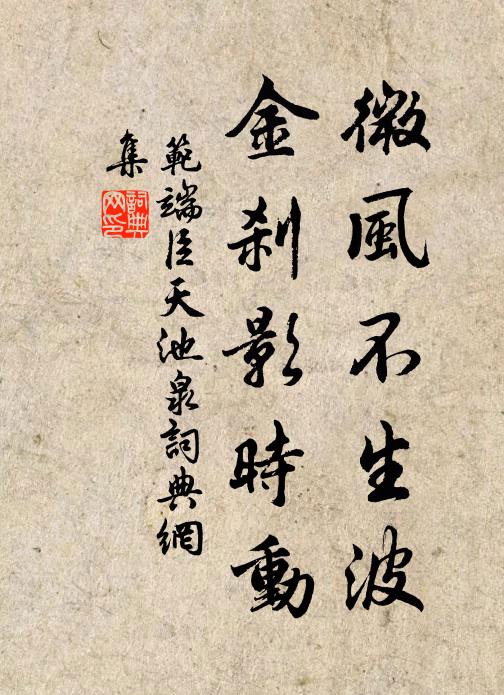 微風不生波
金刹影時動
範端臣天池泉詞典網
集
詞典
网印